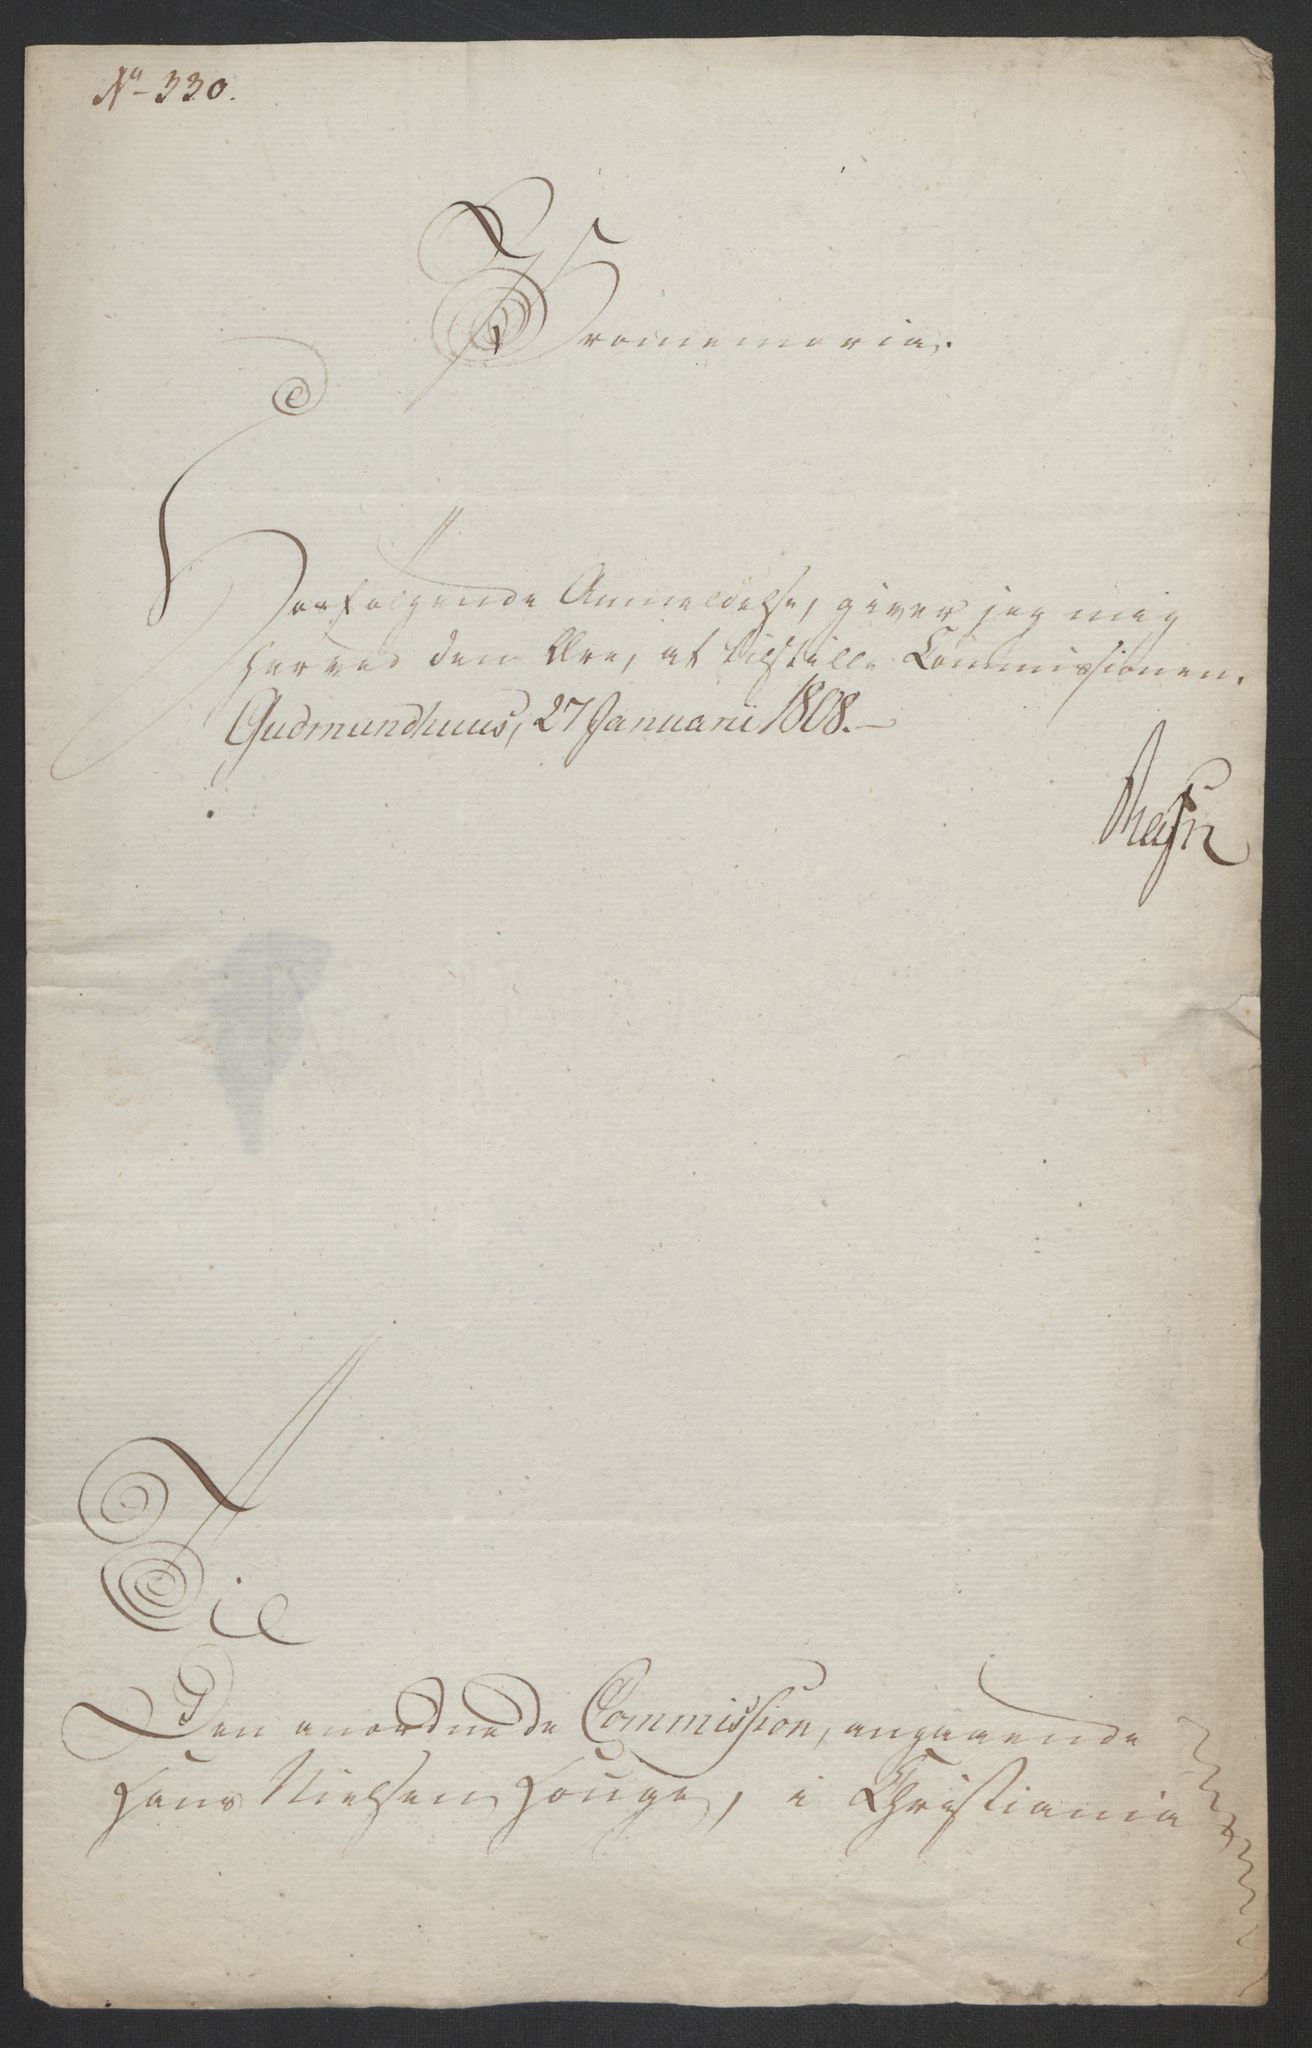 No 330.
Promemoria.
Herfølgende Anmeldelse, giver jeg mig
herved den Ære, at tilstille Commissionen.
Gudmundhuus, 27 Januarii 1808.—
Til
Den anordnede Commission, angaaende
Hans Nielsen Houge, i Christiania